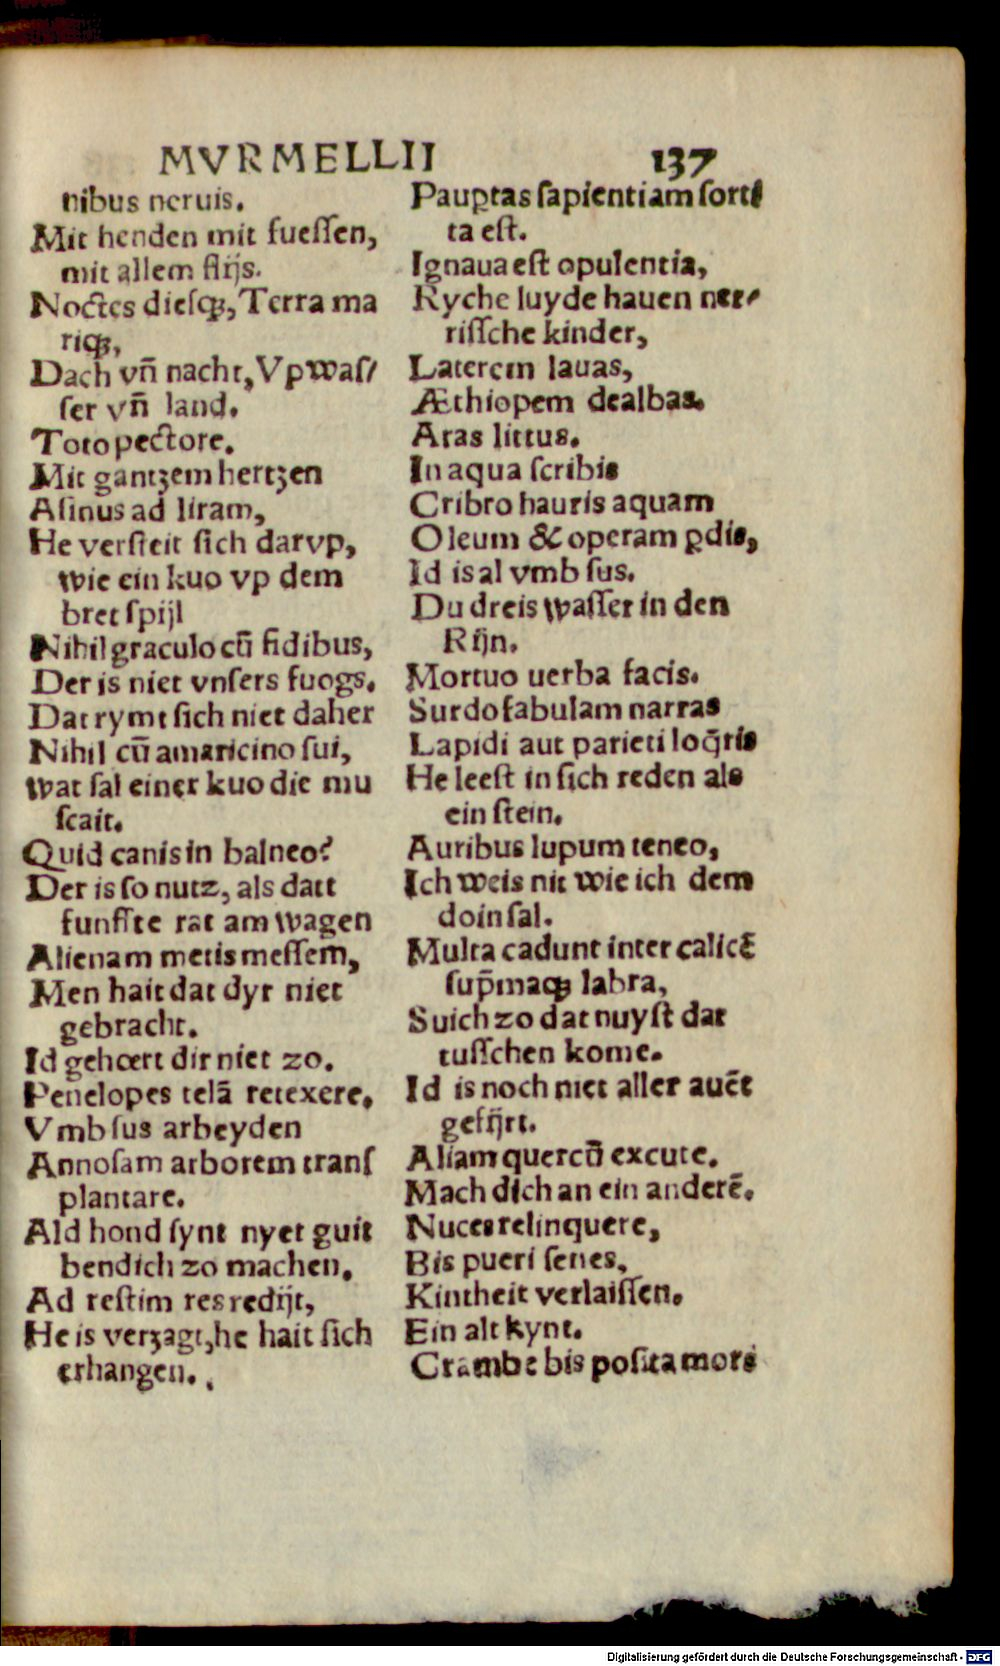 MVRMELLII 137
nibus neruis.
Mit henden mit fueſſen,
mit allem flijs.
Noctes dieſqꝫ, Terra ma
riqꝫ,
Dach vn̄ nacht, Vp waſ/
ſer vn̄ land.
Toto pectore.
Mit gantzem hertzen
Aſinus ad liram,
He verſteit ſich darvp,
wie ein kuo vp dem
bret ſpijl
Nihil graculo cū fidibus,
Der is niet vnſers fuogs.
Dat rymt ſich niet daher
Nihil cū amaricino ſui,
wat ſal einer kuo die mu
ſcait.
Quid canis in balneo?
Der is ſo nutz, als datt
funffte rat am wagen
Alienam metis meſſem,
Men hait dat dyr niet
gebracht.
Id gehœrt dir niet zo.
Penelopes telā retexere.
Vmb ſus arbeyden
Annoſam arborem tranſ
plantare.
Ald hond ſynt nyet guit
bendich zo machen.
Ad reſtim res redijt,
He is verzagt, he hait ſich
erhangen.
Paup̱tas ſapientiam ſorti
ta eſt.
Ignaua eſt opulentia,
Ryche luyde hauen ner/
riſſche kinder,
Laterem lauas,
Æthiopem dealbas.
Aras littus.
In aqua ſcribis
Cribro hauris aquam
Oleum & operam ꝑdis,
Id is al vmb ſus.
Du dreis waſſer in den
Rijn.
Mortuo uerba facis.
Surdo fabulam narras
Lapidi aut parieti loq̄ris
He leeſt in ſich reden als
ein ſtein.
Auribus lupum teneo,
Ich weis nit wie ich dem
doin ſal.
Multa cadunt inter calicē
ſup̄maqꝫ labra,
Suich zo dat nuyſt dar
tuſſchen kome.
Id is noch niet aller auēt
gefijrt.
Aliam quercū excute.
Mach dich an ein anderē.
Nuces relinquere,
Bis pueri ſenes,
Kintheit verlaiſſen.
Ein alt kynt.
Crambe bis poſita mors
Digitalisierung gefördert durch die Deutsche Forschungsgemeinschaft - DFG